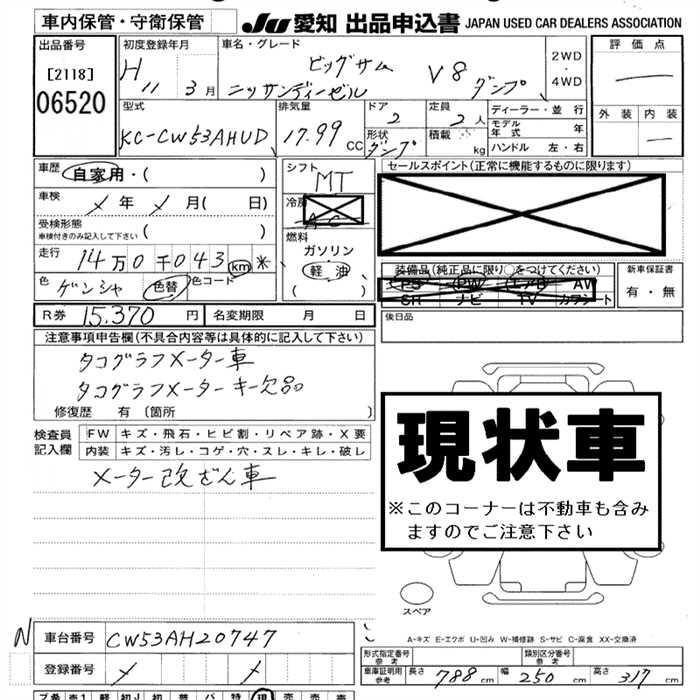 車内保管・守衛保管 JU 愛知 出品申込書 JAPAN USED CAR DEALERS ASSOCIATION
出品番号 初度登録年月 車名・グレード 2WD 評価点
[2118] H11 3月 ニッサンディーゼル ビッグサム V8 ダンプ ・4WD
06520
型式 排気量 ドア 2 定員 2人 ディーラー・並行 外装 内装
KC-CW53AHUD 17.99 CC 形状 ダンプ 積載 kg モデル年式 年
ハンドル 左・右
車歴 自家用・( ) シフト MT セールスポイント(正常に機能するものに限ります)
車検 年 月( 日) 冷房 AC
受検形態 ( ) 燃料
車検付きのみ記入して下さい ガソリン
走行 14万0千043 km ※ 軽油 装備品(純正品に限り○をつけてください) 新車保証書
色 ゲンシャ 色替 色コード ( ) PS PW エアB AW 有・無
SR ナビ TV カワシート
R券 15.370円 名変期限 月 日 後日品
注意事項申告欄(不具合内容等は具体的に記入して下さい)
タコグラフメーター車
タコグラフメーターキー欠品
修復歴 有〔箇所 〕
検査員記入欄 FW キズ・飛石・ヒビ割・リペア跡・X要
内装 キズ・汚し・コゲ・穴・スレ・キレ・破レ
メーター改ざん車
現状車
※このコーナーは不動車も含みますのでご注意下さい
スペア
N 車台番号 CW53AH20747 A-キズ E-エクボ U-凹み W-補修跡 S-サビ C-腐食 XX-交換済
登録番号 形式指定番号 参考 類別区分番号 参考
車庫証明用 参考 長さ 788 cm 幅 250 cm 高さ 317 cm